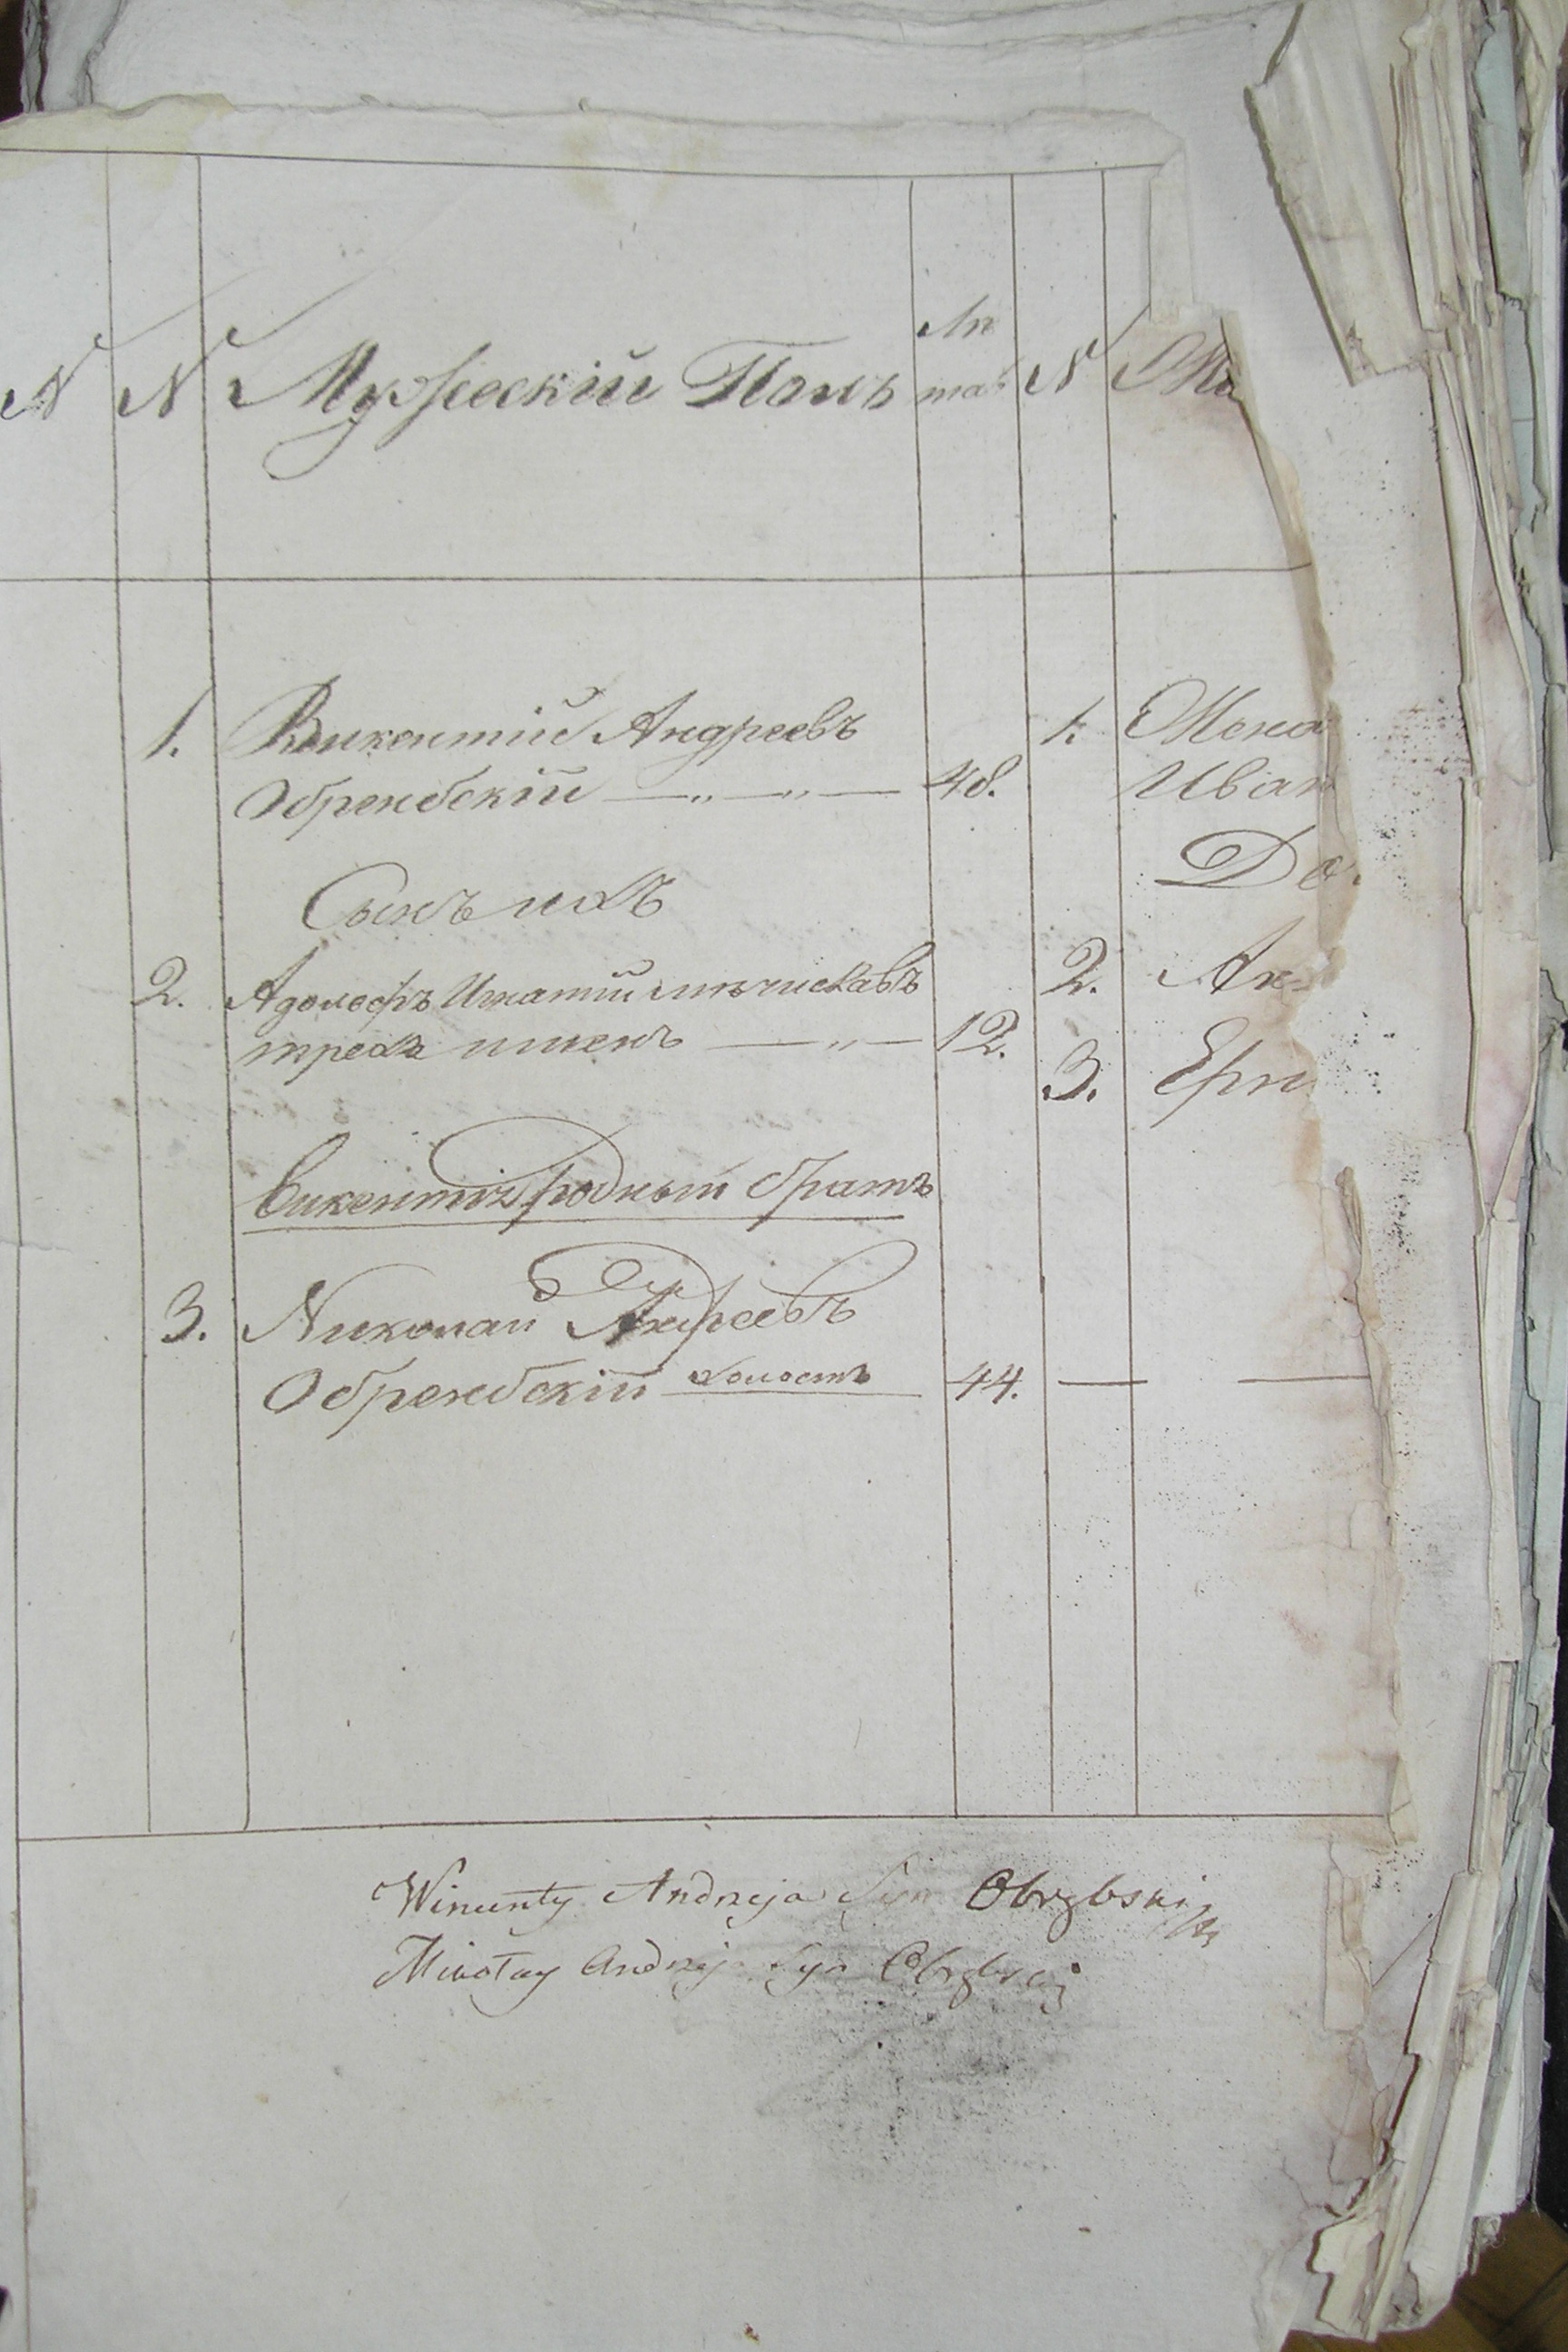 N N Мужескій Полъ Лѣта N Же
1. Викентій Андреевъ 1. Жена
Обренбскій 48. Иван
Сынъ ихъ До
2. Адольфъ Игнатій Мѣчиславъ 2. Ан
трехъ именъ 12. 3. Ерн
Викентія родный братъ
3. Николай Андреевъ
Обренбскій холостъ 44.
Wincenty Andrzeja Syn Obrębski
Mikołay Andrzeja Syn Obrębski